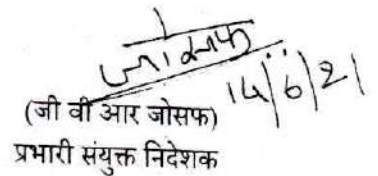 14/6/21
(जी वी आर जोसफ)
प्रभारी संयुक्त निदेशक